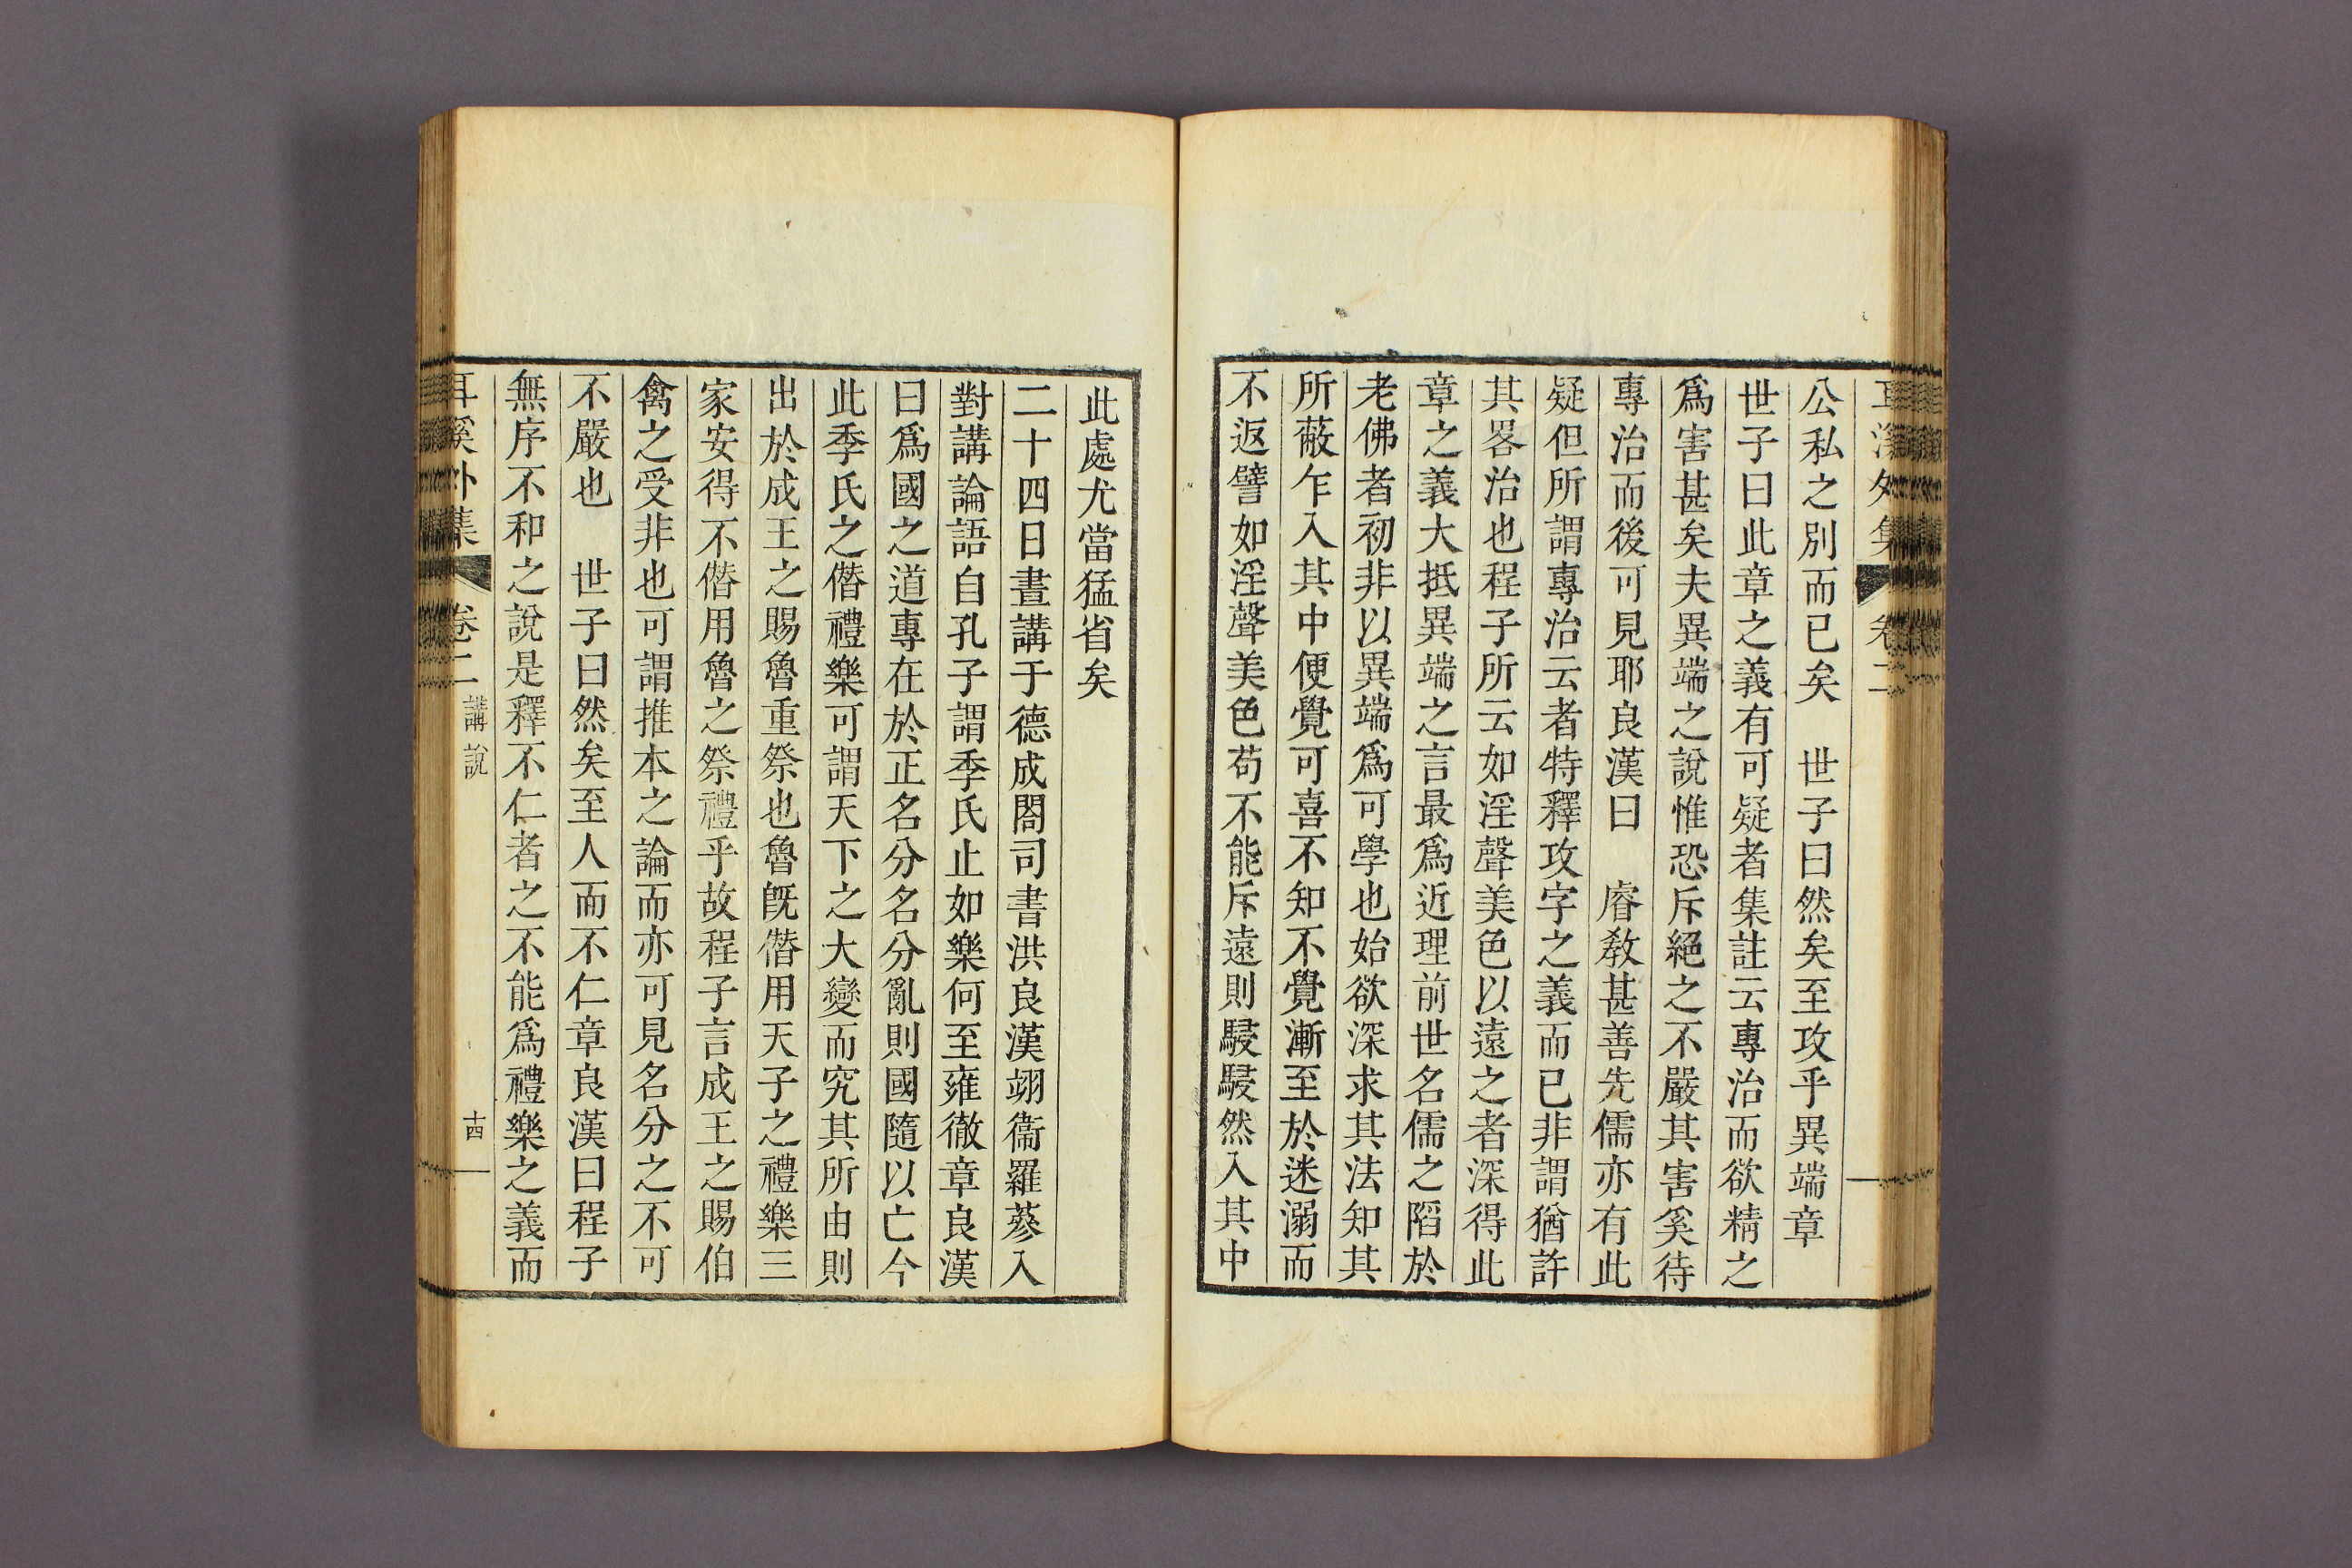 公私之別而已矣　世子曰然矣至攻乎異端章
世子曰此章之義有可疑者集註云專治而欲精之
爲害甚矣夫異端之說惟恐斥絕之不嚴其害奚待
專治而後可見耶良漢曰　睿教甚善先儒亦有此
疑但所謂專治云者特釋攻字之義而已非謂猶許
其畧治也程子所云如淫聲美色以遠之者深得此
章之義大抵異端之言最爲近理前世名儒之陷於
老佛者初非以異端爲可學也始欲深求其法知其
所蔽乍入其中便覺可喜不知不覺漸至於迷溺而
不返譬如淫聲美色苟不能斥遠則駸駸然入其中
此處尤當猛省矣
二十四日晝講于德成閤司書洪良漢翊衞羅蔘入
對講論語自孔子謂季氏止如樂何至雍徹章良漢
曰爲國之道專在於正名分名分亂則國隨以亡今
此季氏之僭禮樂可謂天下之大變而究其所由則
出於成王之賜魯重祭也魯旣僭用天子之禮樂三
家安得不僭用魯之祭禮乎故程子言成王之賜伯
禽之受非也可謂推本之論而亦可見名分之不可
不嚴也　世子曰然矣至人而不仁章良漢曰程子
無序不和之說是釋不仁者之不能爲禮樂之義而
耳溪外集　卷二　講說　十四